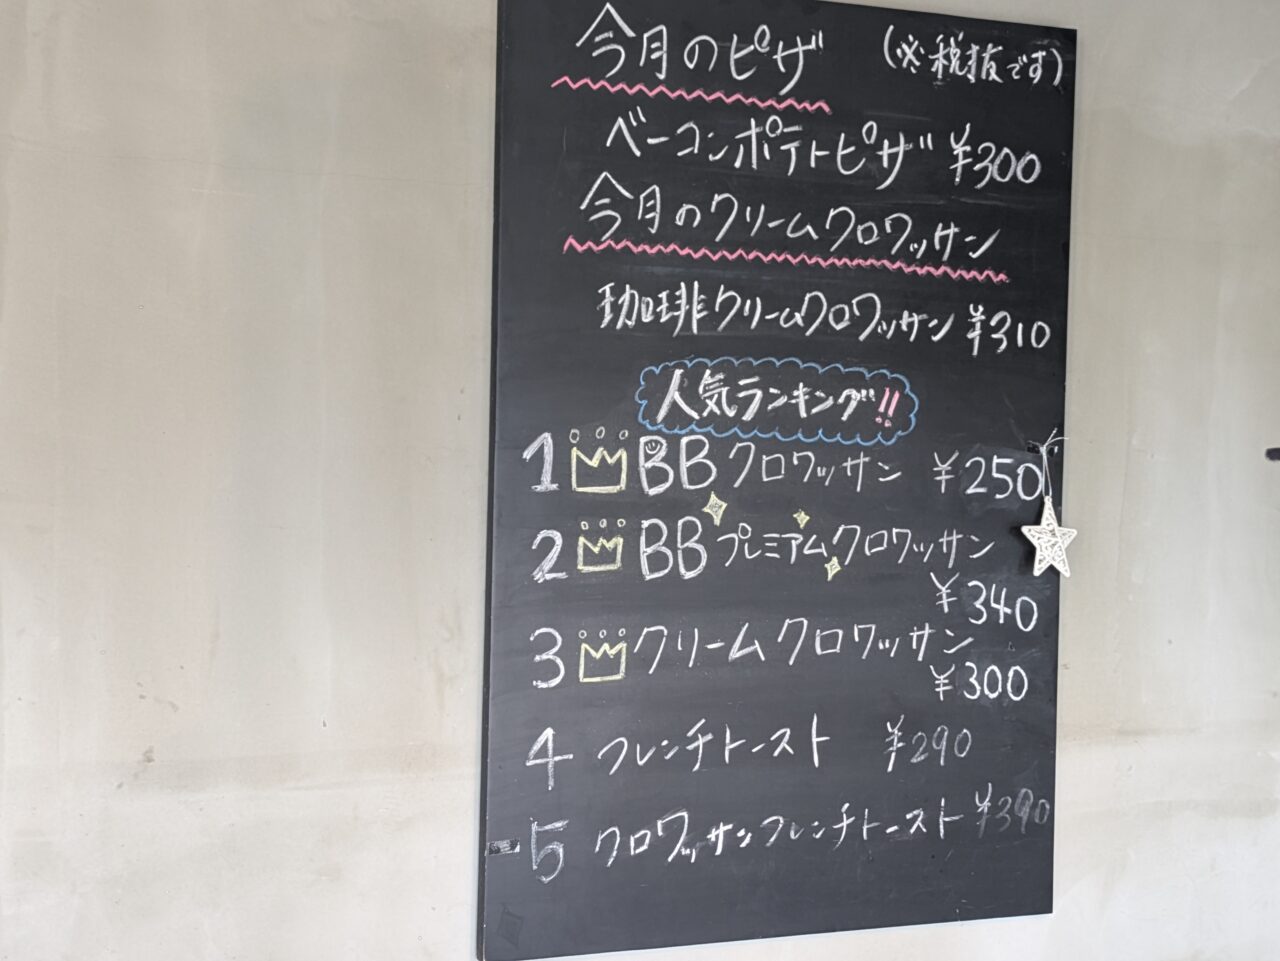 今月のピザ (※税抜です)
ベーコンポテトピザ ¥300
今月のクリームクロワッサン
珈琲クリームクロワッサン ¥310
人気ランキング!!
1 BBクロワッサン ¥250
2 BBプレミアムクロワッサン
¥340
3 クリームクロワッサン
¥300
4 フレンチトースト ¥290
5 クロワッサンフレンチトースト ¥390